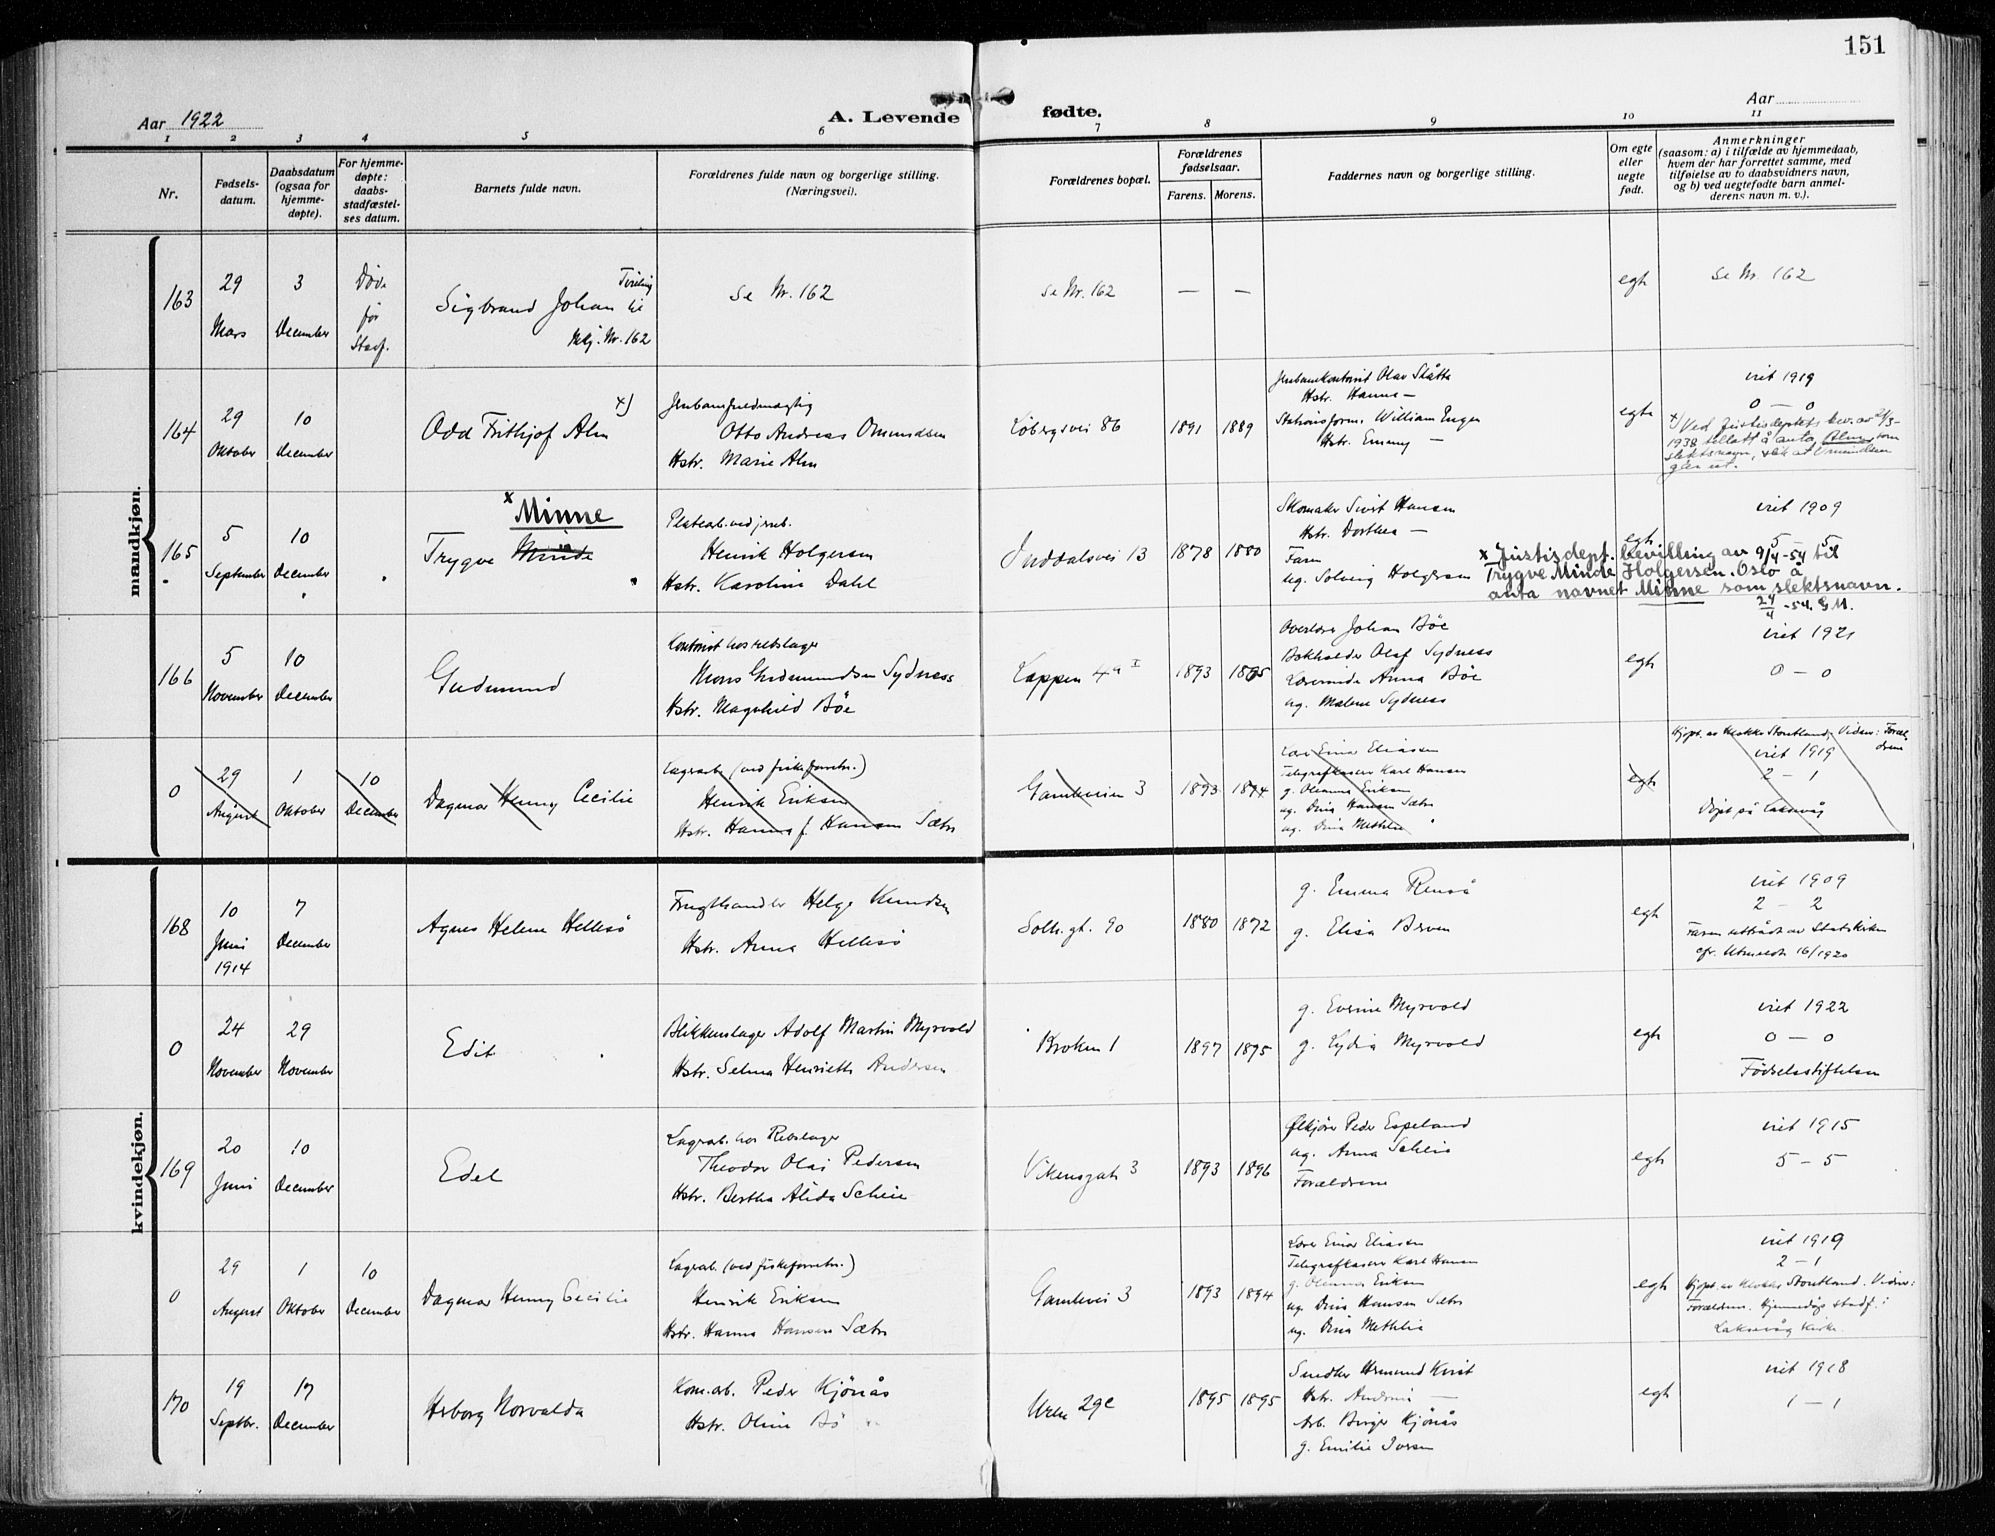 151
Aar 1922
A. Levende fødte.
Aar
1 2 3 4 5 6 7 8 9 10 11
Nr.
Fødsels-
datum.
Daabsdatum
(ogsaa for
hjemme-
døpte).
For hjemme-
døpte:
daabs-
stadfæstel-
ses datum.
Barnets fulde navn.
Forældrenes fulde navn og borgerlige stilling.
(Næringsvei).
Forældrenes bopæl.
Forældrenes
fødselsaar.
Farens. Morens.
Faddernes navn og borgerlige stilling.
Om egte
eller
uegte
født.
Anmerkninger
(saasom: a) i tilfælde av hjemmedaab,
hvem der har forrettet samme, med
tilføielse av to daabsvidners navn,
og b) ved uegtefødte barn anmel-
derens navn m. v.).
mandkjøn.
163
29
Mars
3
December
Døde
før
Stadf.
Sigbrand Johan
Tvilling
til
Mkj. Nr. 162
se Nr. 162
se Nr. 162
— —
egte
se Nr. 162
164
29
Oktober
10
December
Odd Frithjof Alm x)
Jernbanefuldmægtig
Otto Andreas Omundsen
Hstr. Marie Alm
Løbergsvei 86
1891 1889
Jernbanekontorist Olav Slåtta
Hstr. Hanna —
Stationsform. William Enger
Hstr. Emmy —
egte
viet 1919
0 — 0
x) Ved Justisdeptets bev. av
1938 tillatt å anta Alm som
slektsnavn, slik at Omundsen
går ut.
165
5
September
10
December
x Minne
Trygve Minde
Platearb. ved jernb.
Henrik Holgersen
Hstr. Karoline Dahl
Inddalsvei 13
1878 1880
Skomaker Sivert Hansen
Hstr. Dorthea —
Faren
ug. Solveig Holgersen
egte
viet 1909
5 5
x Justisdept. bevilling av 9/4-54 til
Trygve Minde Holgersen. Oslo å
anta navnet Minne som slektsnavn.
24/4-54. G.M.
166
5
November
10
December
Gudmund
Kontorist hos rebslager
Mons Gudmundsen Sydness
Hstr. Magnhild Böe
Lappen 4a I
1893 1895
Overlærer Johan Böe
Bokholder Olaf Sydness
Lærerinde Anna Böe
ug. Malene Sydness
egte
viet 1921
0 — 0
0
29
August
1
Oktober
10
December
Dagmar Henny Cecilie
Lagerarb. (ved fiskeforretn.)
Henrik Eriksen
Hstr. Hanna f. Hansen Sætre
Gamleveien 3
1893 1894
Lærer Einar Eliassen
Telegrafkasserer Karl Hansen
g. Oleanna Eriksen
ug. Dina Hansen Sætre
ug. Dina Methlie
egte
Hjdøpt. av Klokker Storetland, Vidner: Foræl-
drene
viet 1919
2 — 1
Døpt på Laksevåg
kvindekjøn.
168
10
Juni
1914
7
December
Agnes Helene Hellesö
Frugthandler Helge Knudsen
Hstr. Anna Hellesö
Solh. gt. 90
1880 1872
g. Emma Renså
g. Elisa Berven
egte
viet 1909
2 — 2
Faren utträdt av Statskirken
cfr. Utmeldte 16/1920
0
24
November
29
November
Edit
Blikkenslager Adolf Martin Myrvold
Hstr. Selma Henriette Andersen
Kroken 1
1897 1895
g. Evenine Myrvold
g. Lydia Myrvold
egte
viet 1922
0 — 0
Fødselsstiftelsen
169
20
Juni
10
December
Edel
Lagerarb. hos Rebslager
Theodor Olai Pedersen
Hstr. Bertha Alida Scheie
Vikensgate 3
1893 1896
Ølkjører Peder Espeland
ug. Anna Scheie
Forældrene
egte
viet 1915
5 — 5
0
29
August
1
Oktober
10
December
Dagmar Henny Cecilie
Lagerarb. (ved fiskeforretn.)
Henrik Eriksen
Hstr. Hanna Hansen Sætre
Gamlevei 3
1893 1894
Lærer Einar Eliassen
Telegrafkasserer Karl Hansen
g. Oleanna Eriksen
ug. Dina Hansen Sætre
ug. Dina Methlie
egte
viet 1919
2 — 1
Hjdøpt. av Klokker Storetland. Vidner:
Forældrene. Hjemmedåp stadf. i
Laksevåg Kirke.
170
19
Septbr.
17
December
Herborg Norvalda
Kom.arb. Peder Kjönås
Hstr. Oline Bö
29c
1895 1895
Hstr. —
Arb. Birger Kjönås
g. Emilie Iversen
egte
viet 1918
1 — 1